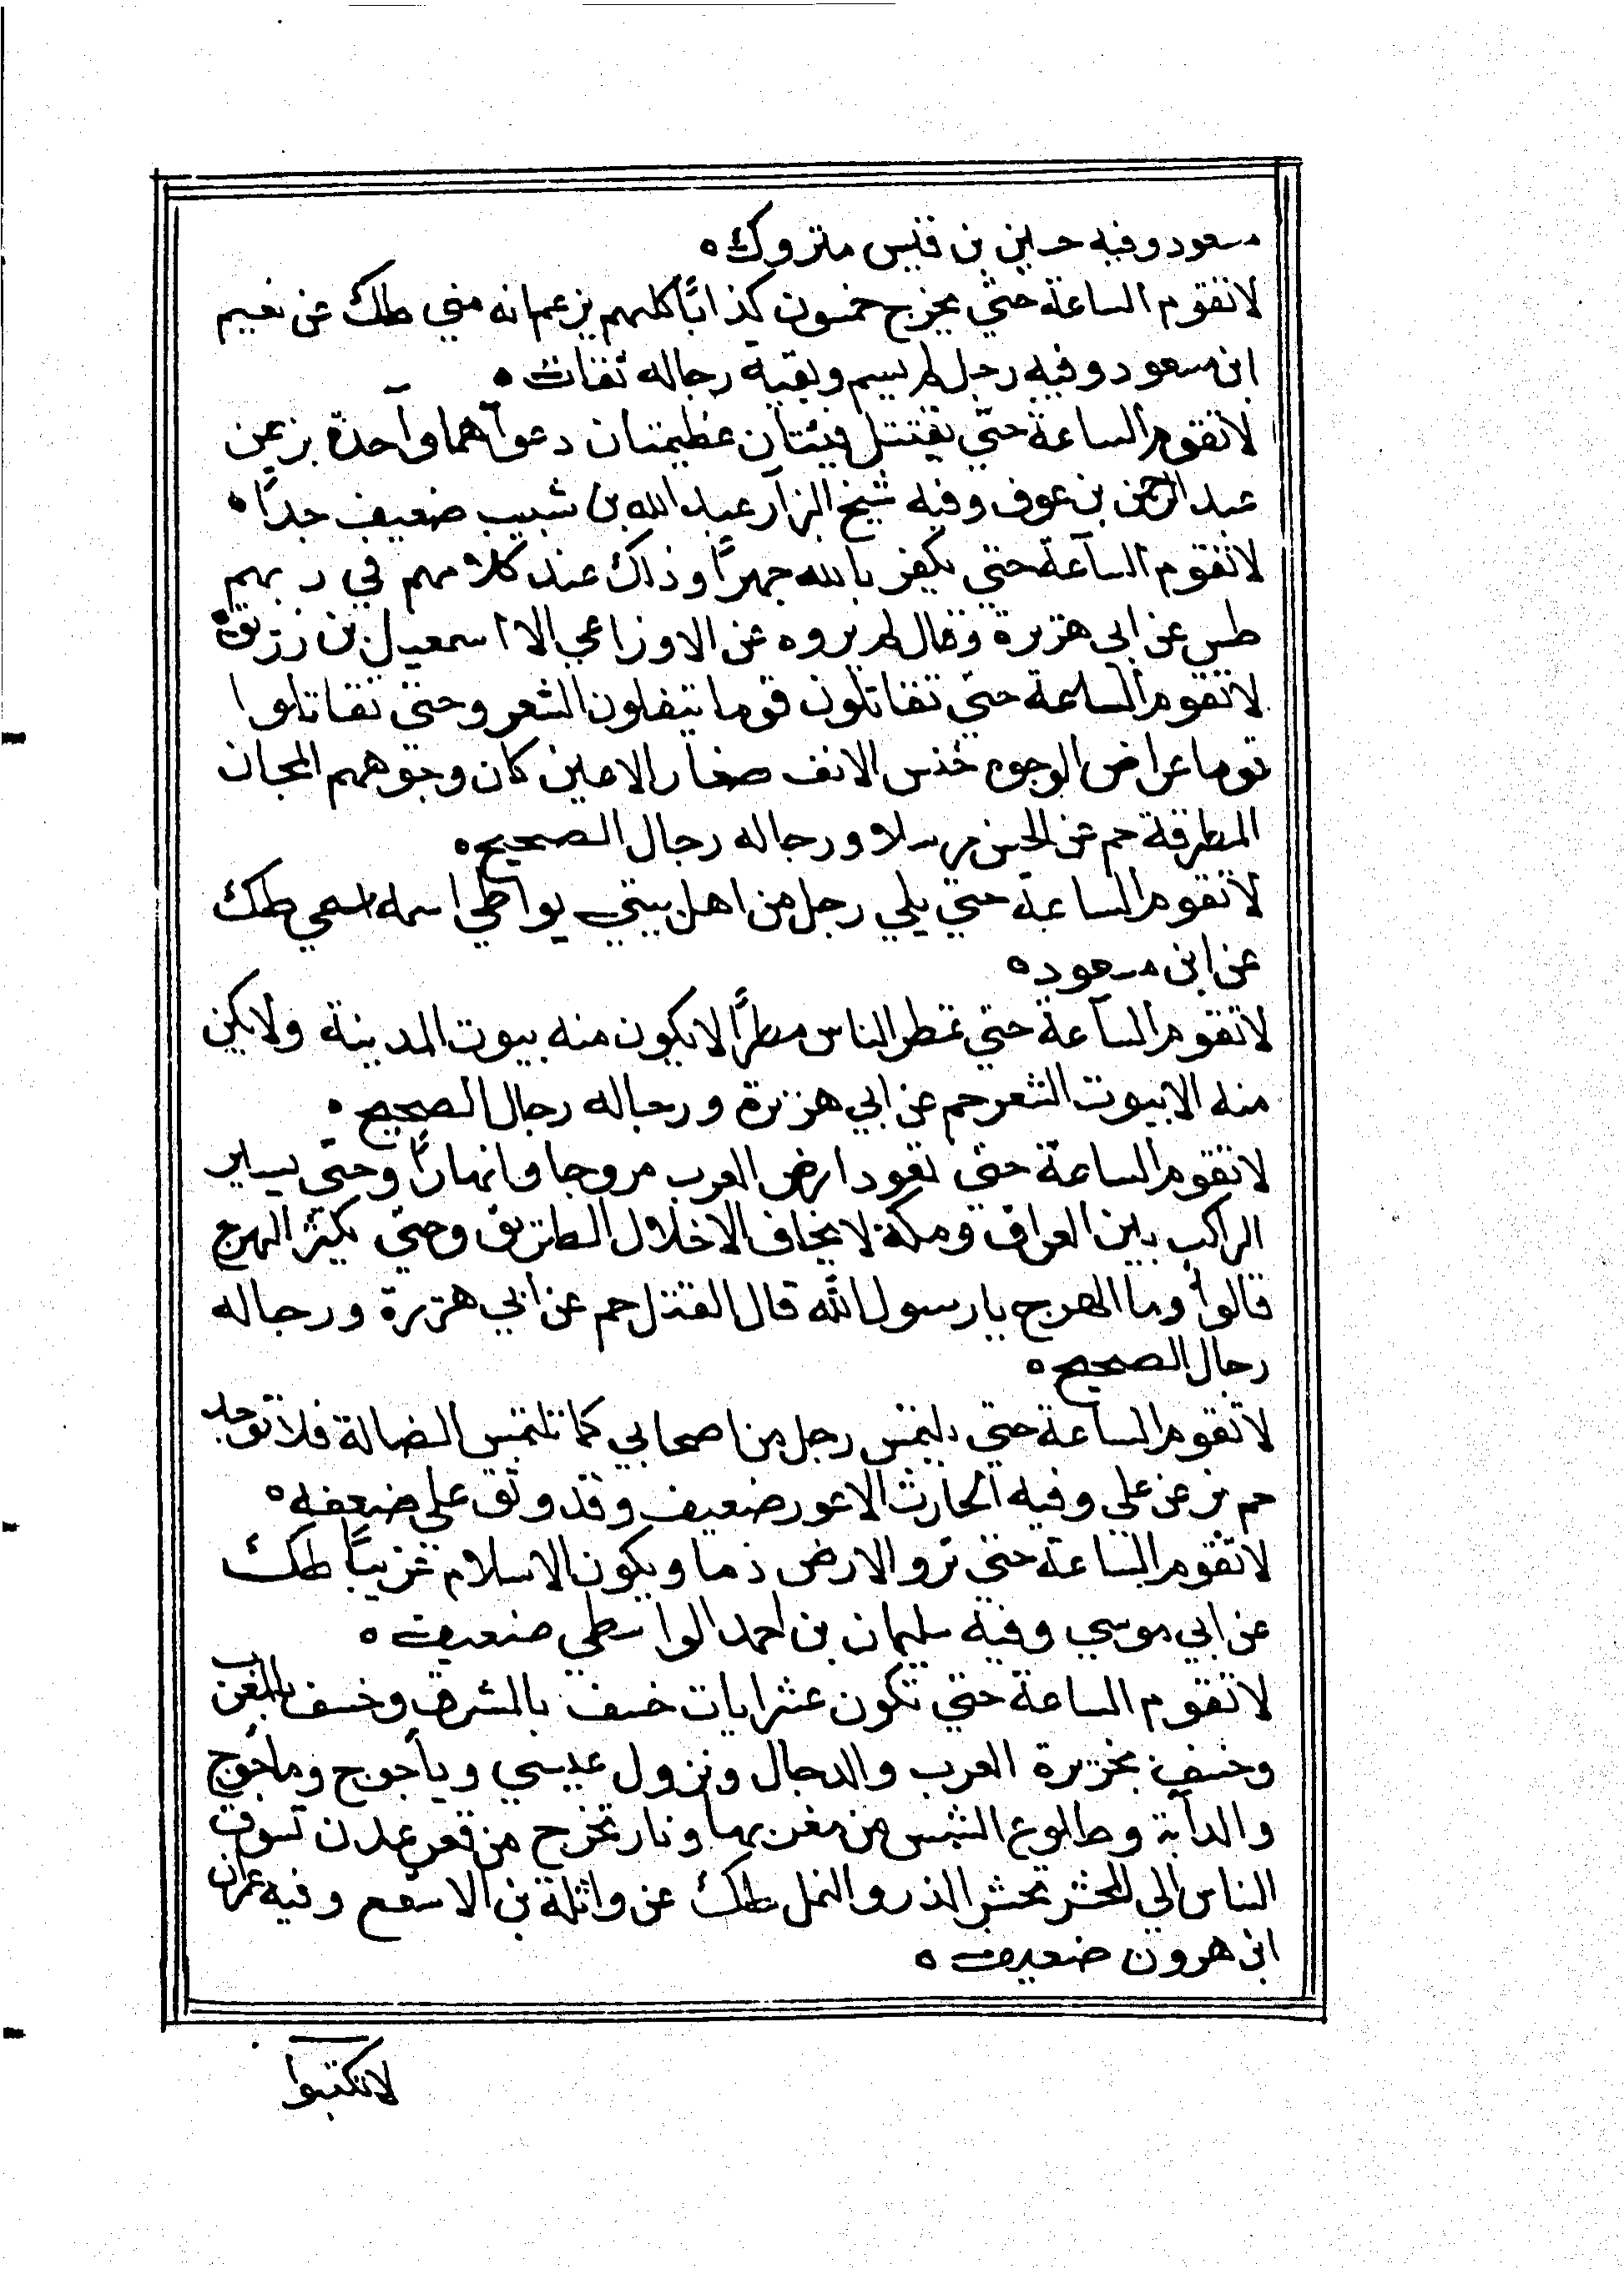 مسعود وفيه حسين بن قيس متروك ه
لا تقوم الساعة حتي يخرج خمسون كذابًا كلهم يزعم انه مني طك عن نعيم
ابن مسعود وفيه رجل لم يسم وبقية رجاله ثقات ه
لا تقوم الساعة حتي يقتتل فيئتان عظيمتان دعواهما واحدة بز عن
عبد الرحمن بن عوف وفيه شيخ البزار عبد الله بن شبيب ضعيف جدًا ه
لا تقوم الساعة حتي يكفر بالله جهرًا وذلك عند كلامهم في ربهم
طس عن ابي هريرة وقال لم يروه عن الاوزاعي الا اسمعيل بن رزيق ه
لا تقوم الساعة حتي تقاتلون قوما ينتعلون الشعر وحتي تقاتلوا
قوما عراض الوجوه خنس الانف صغار الاعين كان وجوههم المجان
المطرقة حم عن الحسن مرسلا ورجاله رجال الصحيح ه
لا تقوم الساعة حتي يلي رجل من اهل بيتي يواطي اسمه اسمي طك
عن ابن مسعود ه
لا تقوم الساعة حتي تمطر الناس مطرًا لا يكون منه بيوت المدينة ولا يكن
منه الا بيوت الشعر حم عن ابي هريرة ورجاله رجال الصحيح ه
لا تقوم الساعة حتي تعود ارض العرب مروجا وانهارًا وحتي يسير
الراكب بين العراق ومكة لا يخاف الا ضلال الطريق وحتي يكثر الهرج
قالوا وما الهرج يا رسول الله قال القتل حم عن ابي هريرة ورجاله
رجال الصحيح ه
لا تقوم الساعة حتي يلتمس رجل من اصحابي كما تلتمس الضالة فلا توجد
حم بز عن علي وفيه الحارث الاعور ضعيف وقد وثق علي ضعفه ه
لا تقوم الساعة حتي تروا الارض دما ويكون الاسلام غريبًا طك
عن ابي موسي وفيه سليمان بن احمد الواسطي ضعيف ه
لا تقوم الساعة حتي تكون عشر ايات خسف بالمشرق وخسف بالمغرب
وخسف بجزيرة العرب والدجال ونزول عيسي وياجوج وماجوج
والدآبة وطلوع الشمس من مغربها ونار تخرج من قعر عدن تسوق
الناس الي المحشر تحشر الذر والنمل طك عن واثلة بن الاسقع وفيه عمران
ابن هرون ضعيف ه
لا تكتبوا